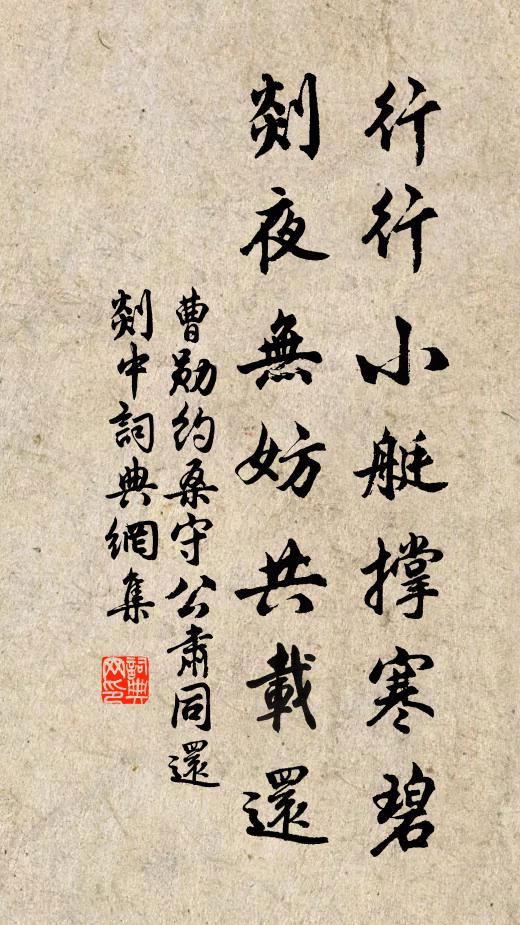 行行小艇撐寒碧
剡夜無妨共載還
曹勛約桑守公肅同還
剡中詞典網集
詞典网印